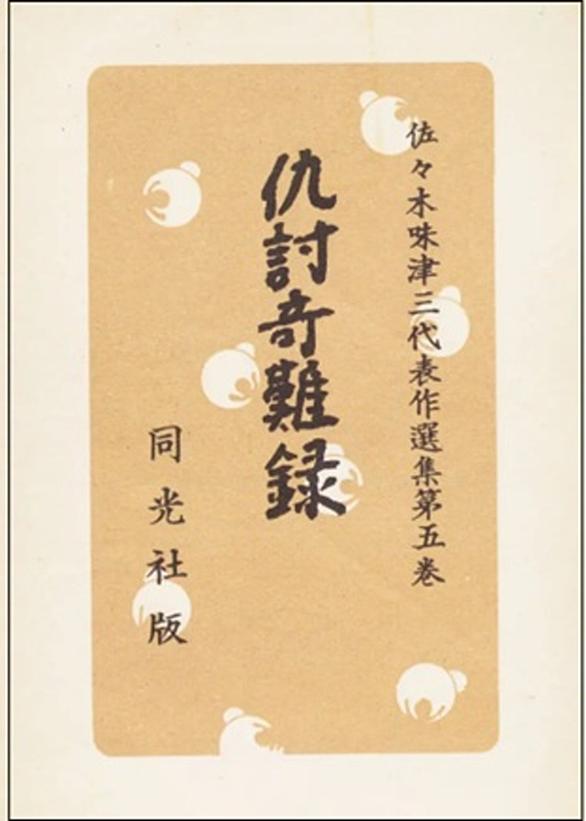 佐々木味津三代表作選集第五巻
仇討奇難録
同光社版